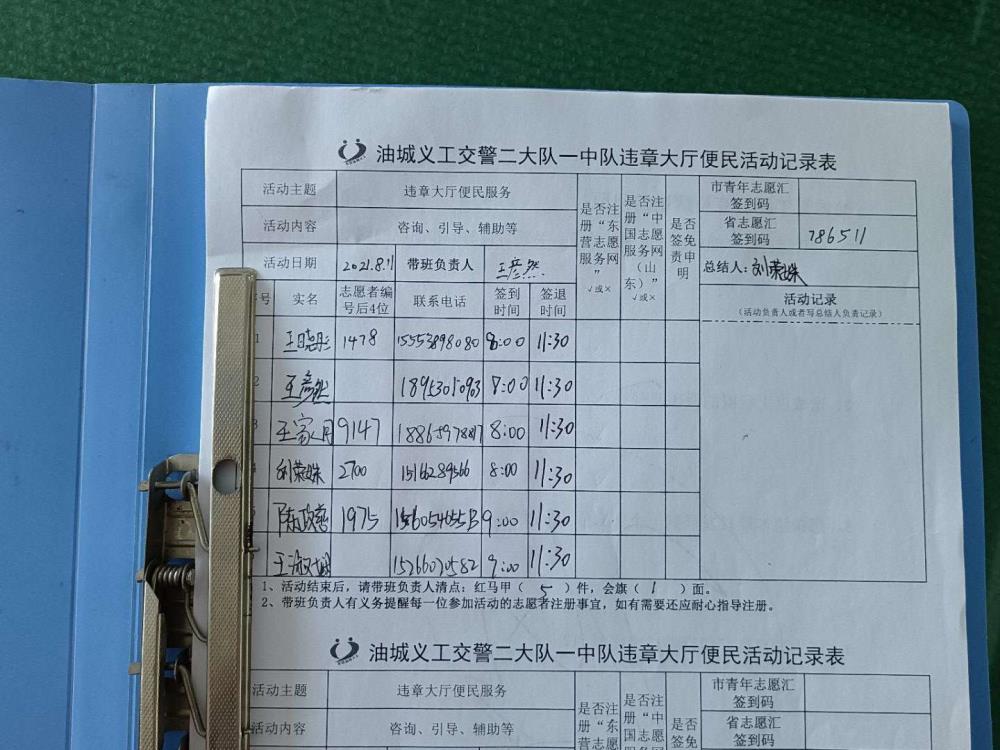 油城义工交警二大队一中队违章大厅便民活动记录表
活动主题 违章大厅便民服务
活动内容 咨询、引导、辅助等
活动日期 2021.8.11 带班负责人 王彦然
是否注册“东营志愿服务网” √或×
是否注册“中国志愿服务网（山东）” √或×
是否签免责申明
市青年志愿汇签到码
省志愿汇签到码 786511
总结人：刘荣姝
活动记录
（活动负责人或者写总结人负责记录）
号 实名 志愿者编号后4位 联系电话 签到时间 签退时间
1 王晓彤 1478 15553898080 8:00 11:30
2 王彦然 18953010903 8:00 11:30
3 王家月 9147 8:00 11:30
刘荣姝 2700 15166289566 8:00 11:30
5 陈政 1975 9:00 11:30
王淑 15266030582 9:00 11:30
1、活动结束后，请带班负责人清点：红马甲（ 5 ）件，会旗（ 1 ）面。
2、带班负责人有义务提醒每一位参加活动的志愿者注册事宜，如有需要还应耐心指导注册。
油城义工交警二大队一中队违章大厅便民活动记录表
活动主题 违章大厅便民服务
活动内容 咨询、引导、辅助等
是否注册“东营志愿
是否注册“中国志愿
是否签免
市青年志愿汇签到码
省志愿汇签到码